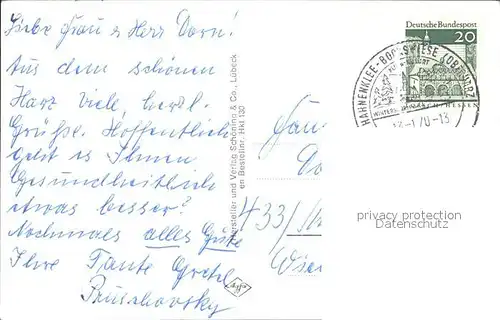 Liebe Frau u Herr Dorn!
Aus dem schönen
Harz viele herzl.
Grüße. Hoffentlich
geht es Ihnen
Gesundheitlich
etwas besser?
Nochmals alles Gute
Ihre Tante Gretl
Hersteller und Verlag Schöning & Co., Lübeck
en Bestellnr. Hkl 130
Agfa
Deutsche Bundespost
20
HAHNENKLEE-BOCKSWIESE (OBERHARZ)
70-13
433/
privacy protection
Datenschutz